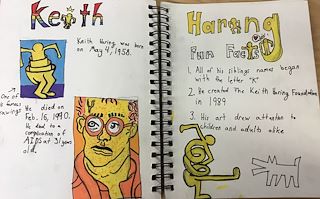 Keith
Keith Haring was born
on May 4, 1958.
One of
his famous
drawings
He died on
Feb. 16, 1990.
He died to a
complication of
AIDS at 31 years
old.
Haring
Fun Facts
1. All of his siblings names began
with the letter "K"
2. He created The Keith Haring Foundation
in 1989
3. His art drew attention to
children and adults alike